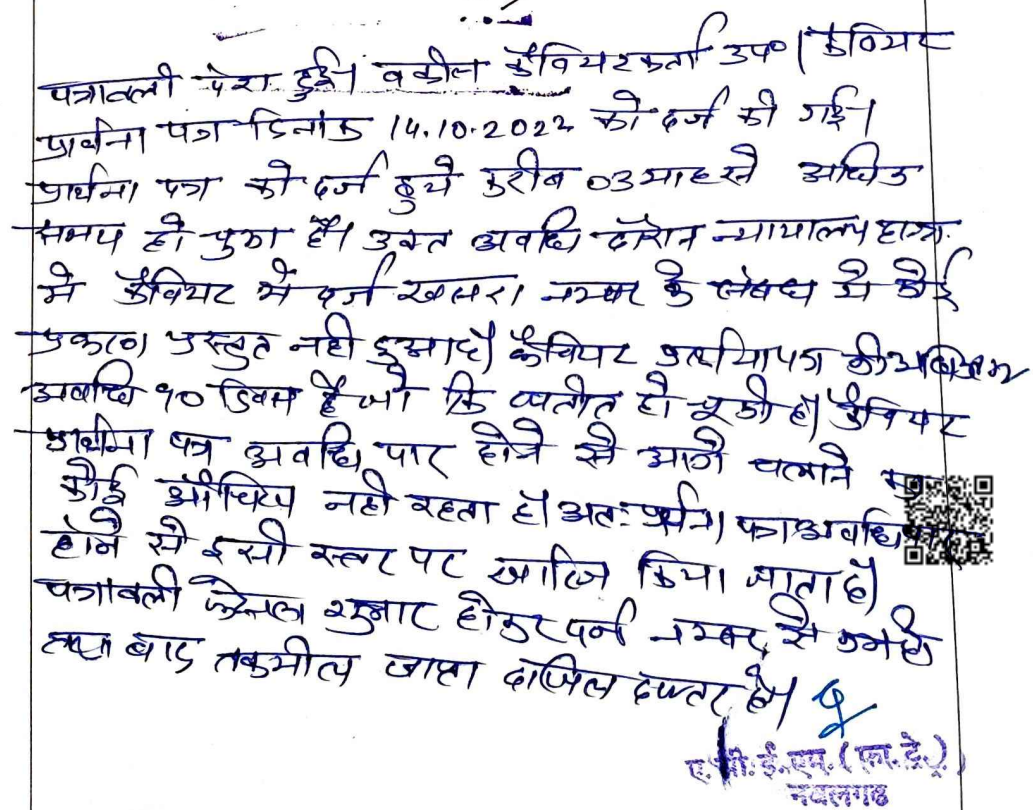 पत्रावली पेश हुई। वकील कैवियटकर्ता उप०। कैवियट
प्रार्थना पत्र दिनांक 14.10.2022 को दर्ज की गई।
प्रार्थना पत्र को दर्ज हुये करीब 03 माह से अधिक
समय हो चुका है। उक्त अवधि दौरान न्यायालय हाजा
में कैवियट में दर्ज खसरा नम्बर के संबंध में कोई
प्रकरण प्रस्तुत नही हुआ है। कैवियट की अधिकतम
अवधि 90 दिवस है जो कि व्यतीत हो चूकी है। कैवियट
प्रार्थना पत्र अवधि पार होने से आगे चलाने का
कोई औचित्य नही रहता है। अतः प्रार्थना पत्र अवधि पार
होने से इसी स्तर पर खारिज किया जाता है।
पत्रावली फैसल शुमार होकर दर्ज नम्बर से कम हो
तथा बाद तकमील जाप्ता दाखिल दफ्तर हो।
ए.सी.ई.एम. (फा.ट्रे.)
नवलगढ